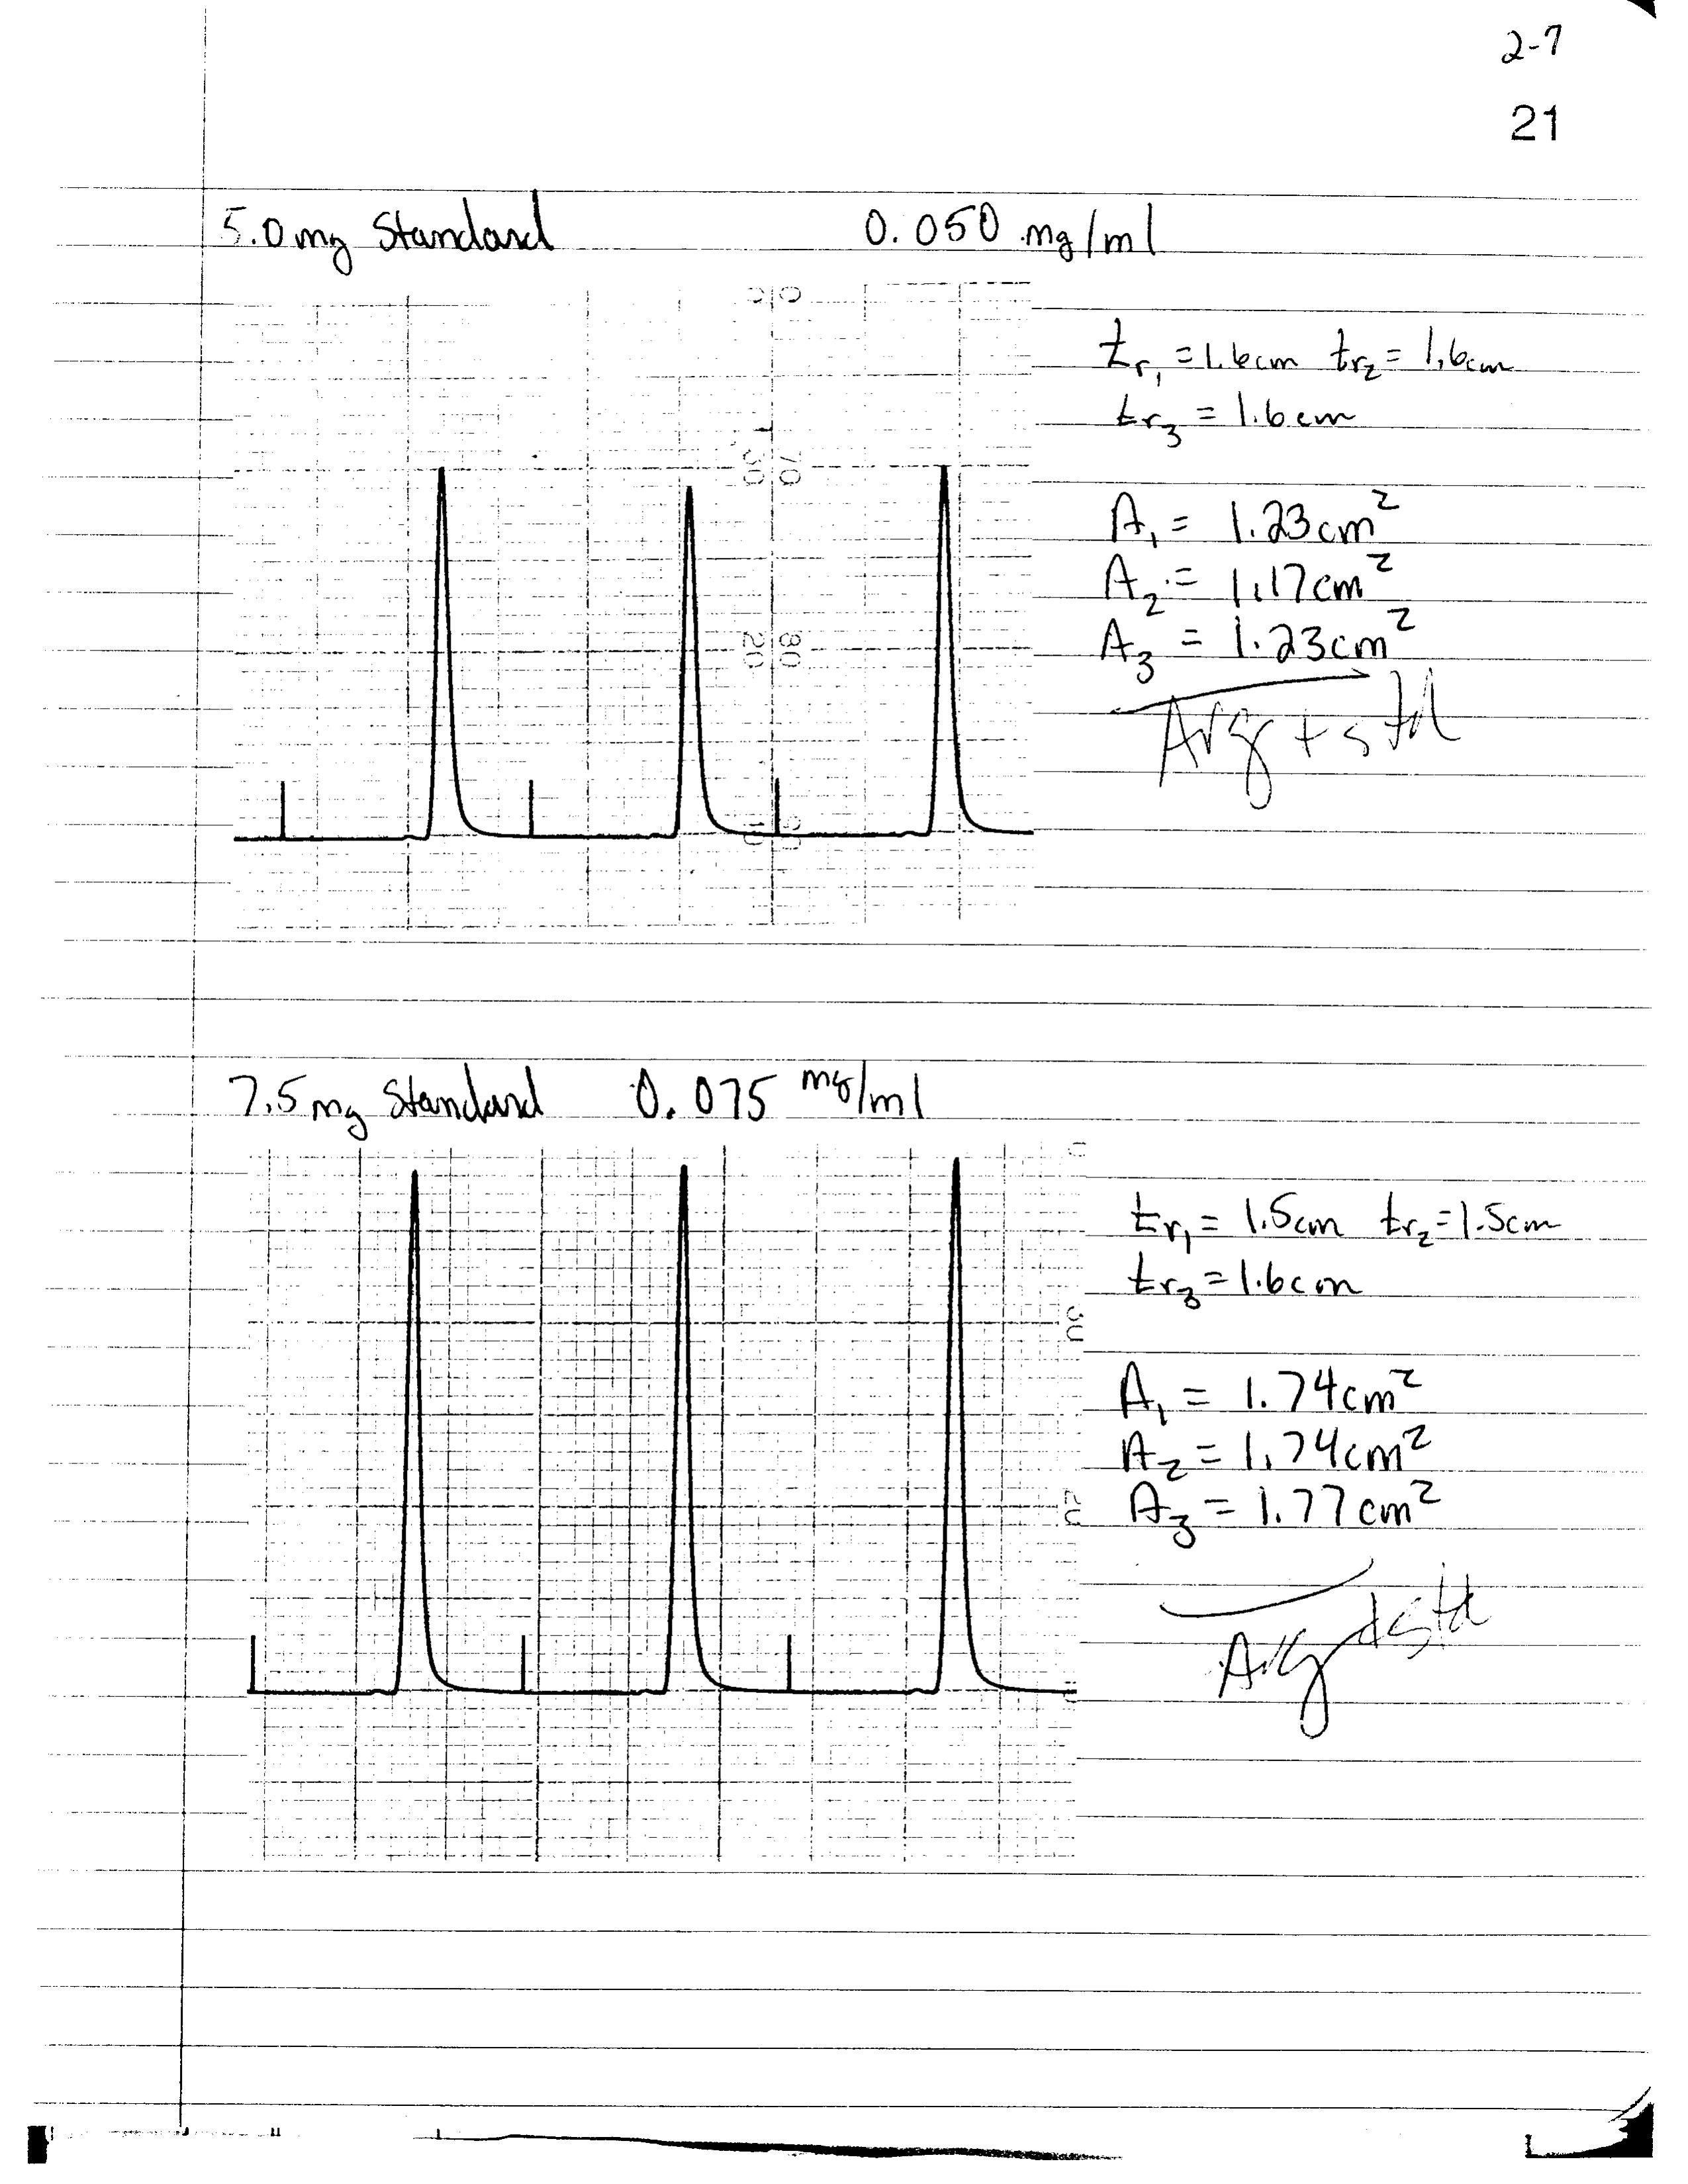 2-7
21
5.0mg Standard 0.050 mg/ml
tr₁ = 1.6cm tr₂ = 1.6cm
tr₃ = 1.6cm
70
30
A₁ = 1.23cm²
A₂ = 1.17cm²
A₃ = 1.23cm²
80
20
Avg + std
90
10
7.5mg Standard 0.075 mg/ml
tr₁ = 1.5cm tr₂ = 1.5cm
tr₃ = 1.6cm
30
A₁ = 1.74cm²
A₂ = 1.74cm²
20
A₃ = 1.77cm²
Avg + std